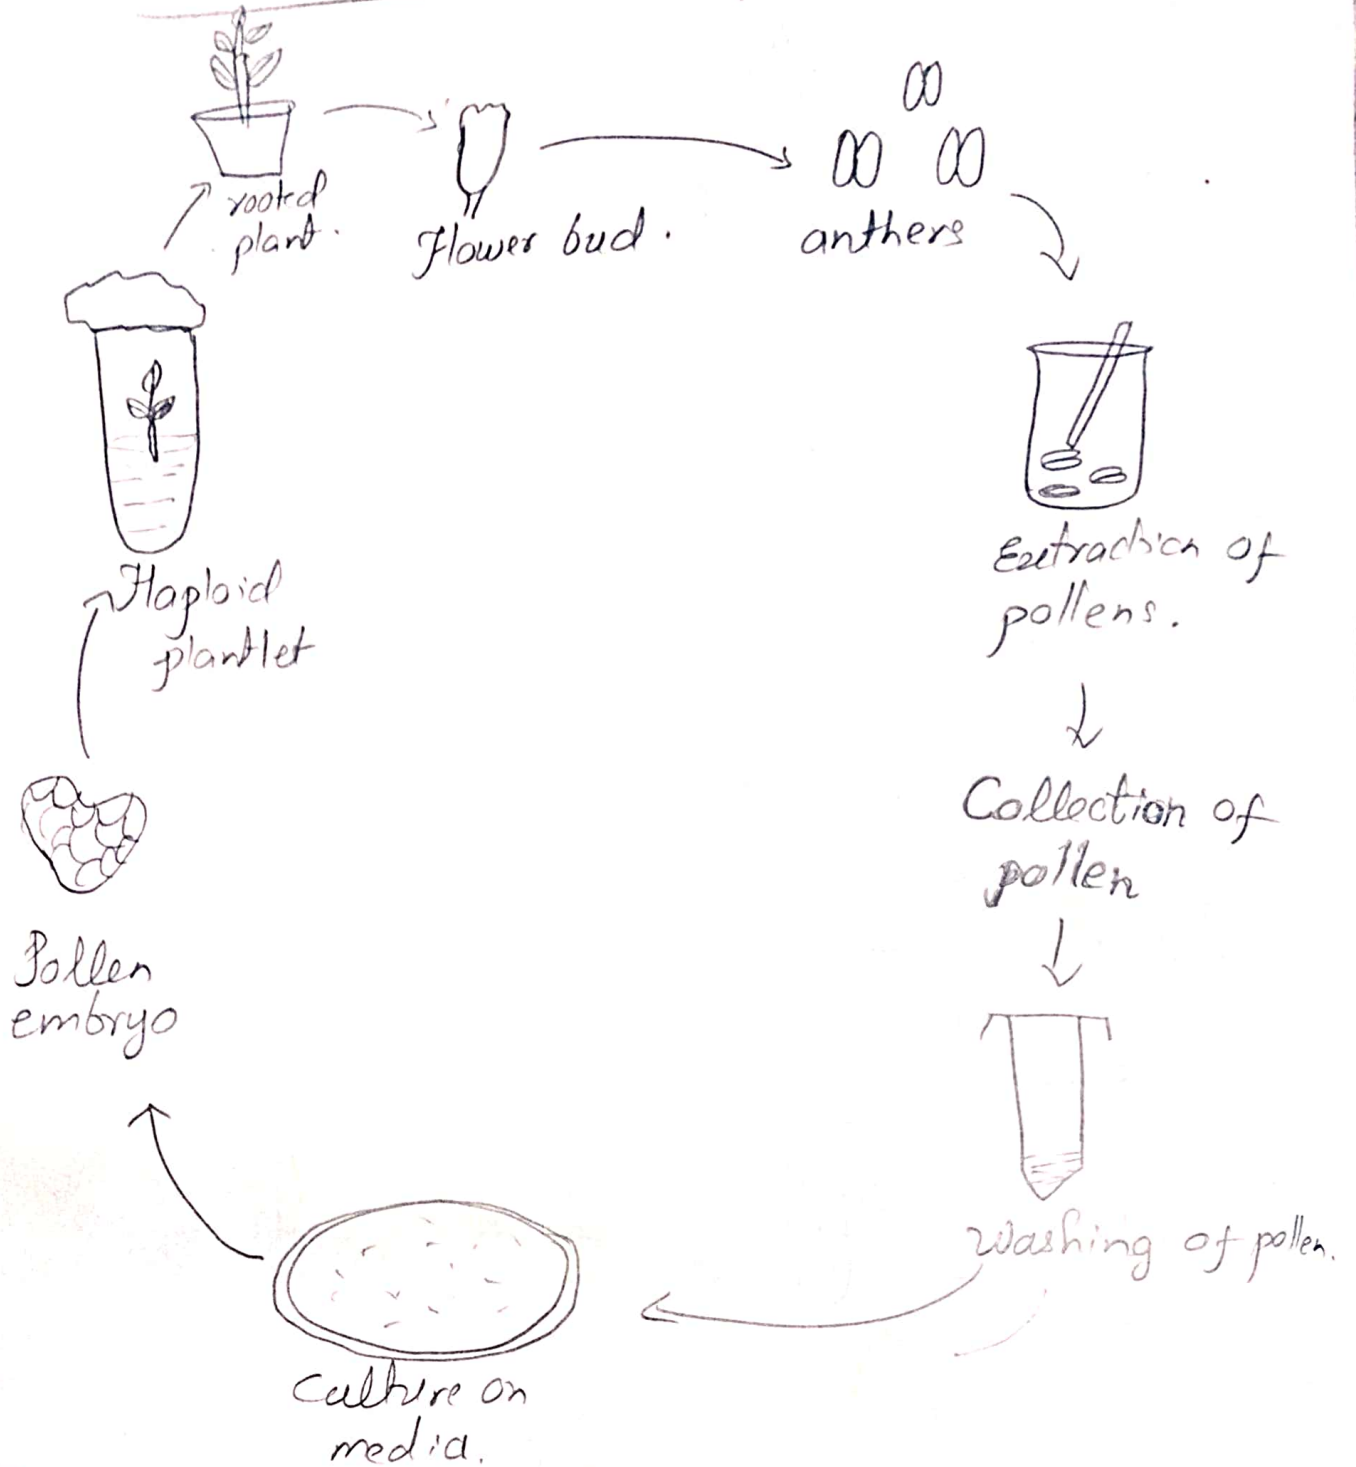 rooted
plant.
Flower bud.
anthers
Extraction of
pollens.
Collection of
pollen
Washing of pollen.
Culture on
media.
Pollen
embryo
Haploid
plantlet